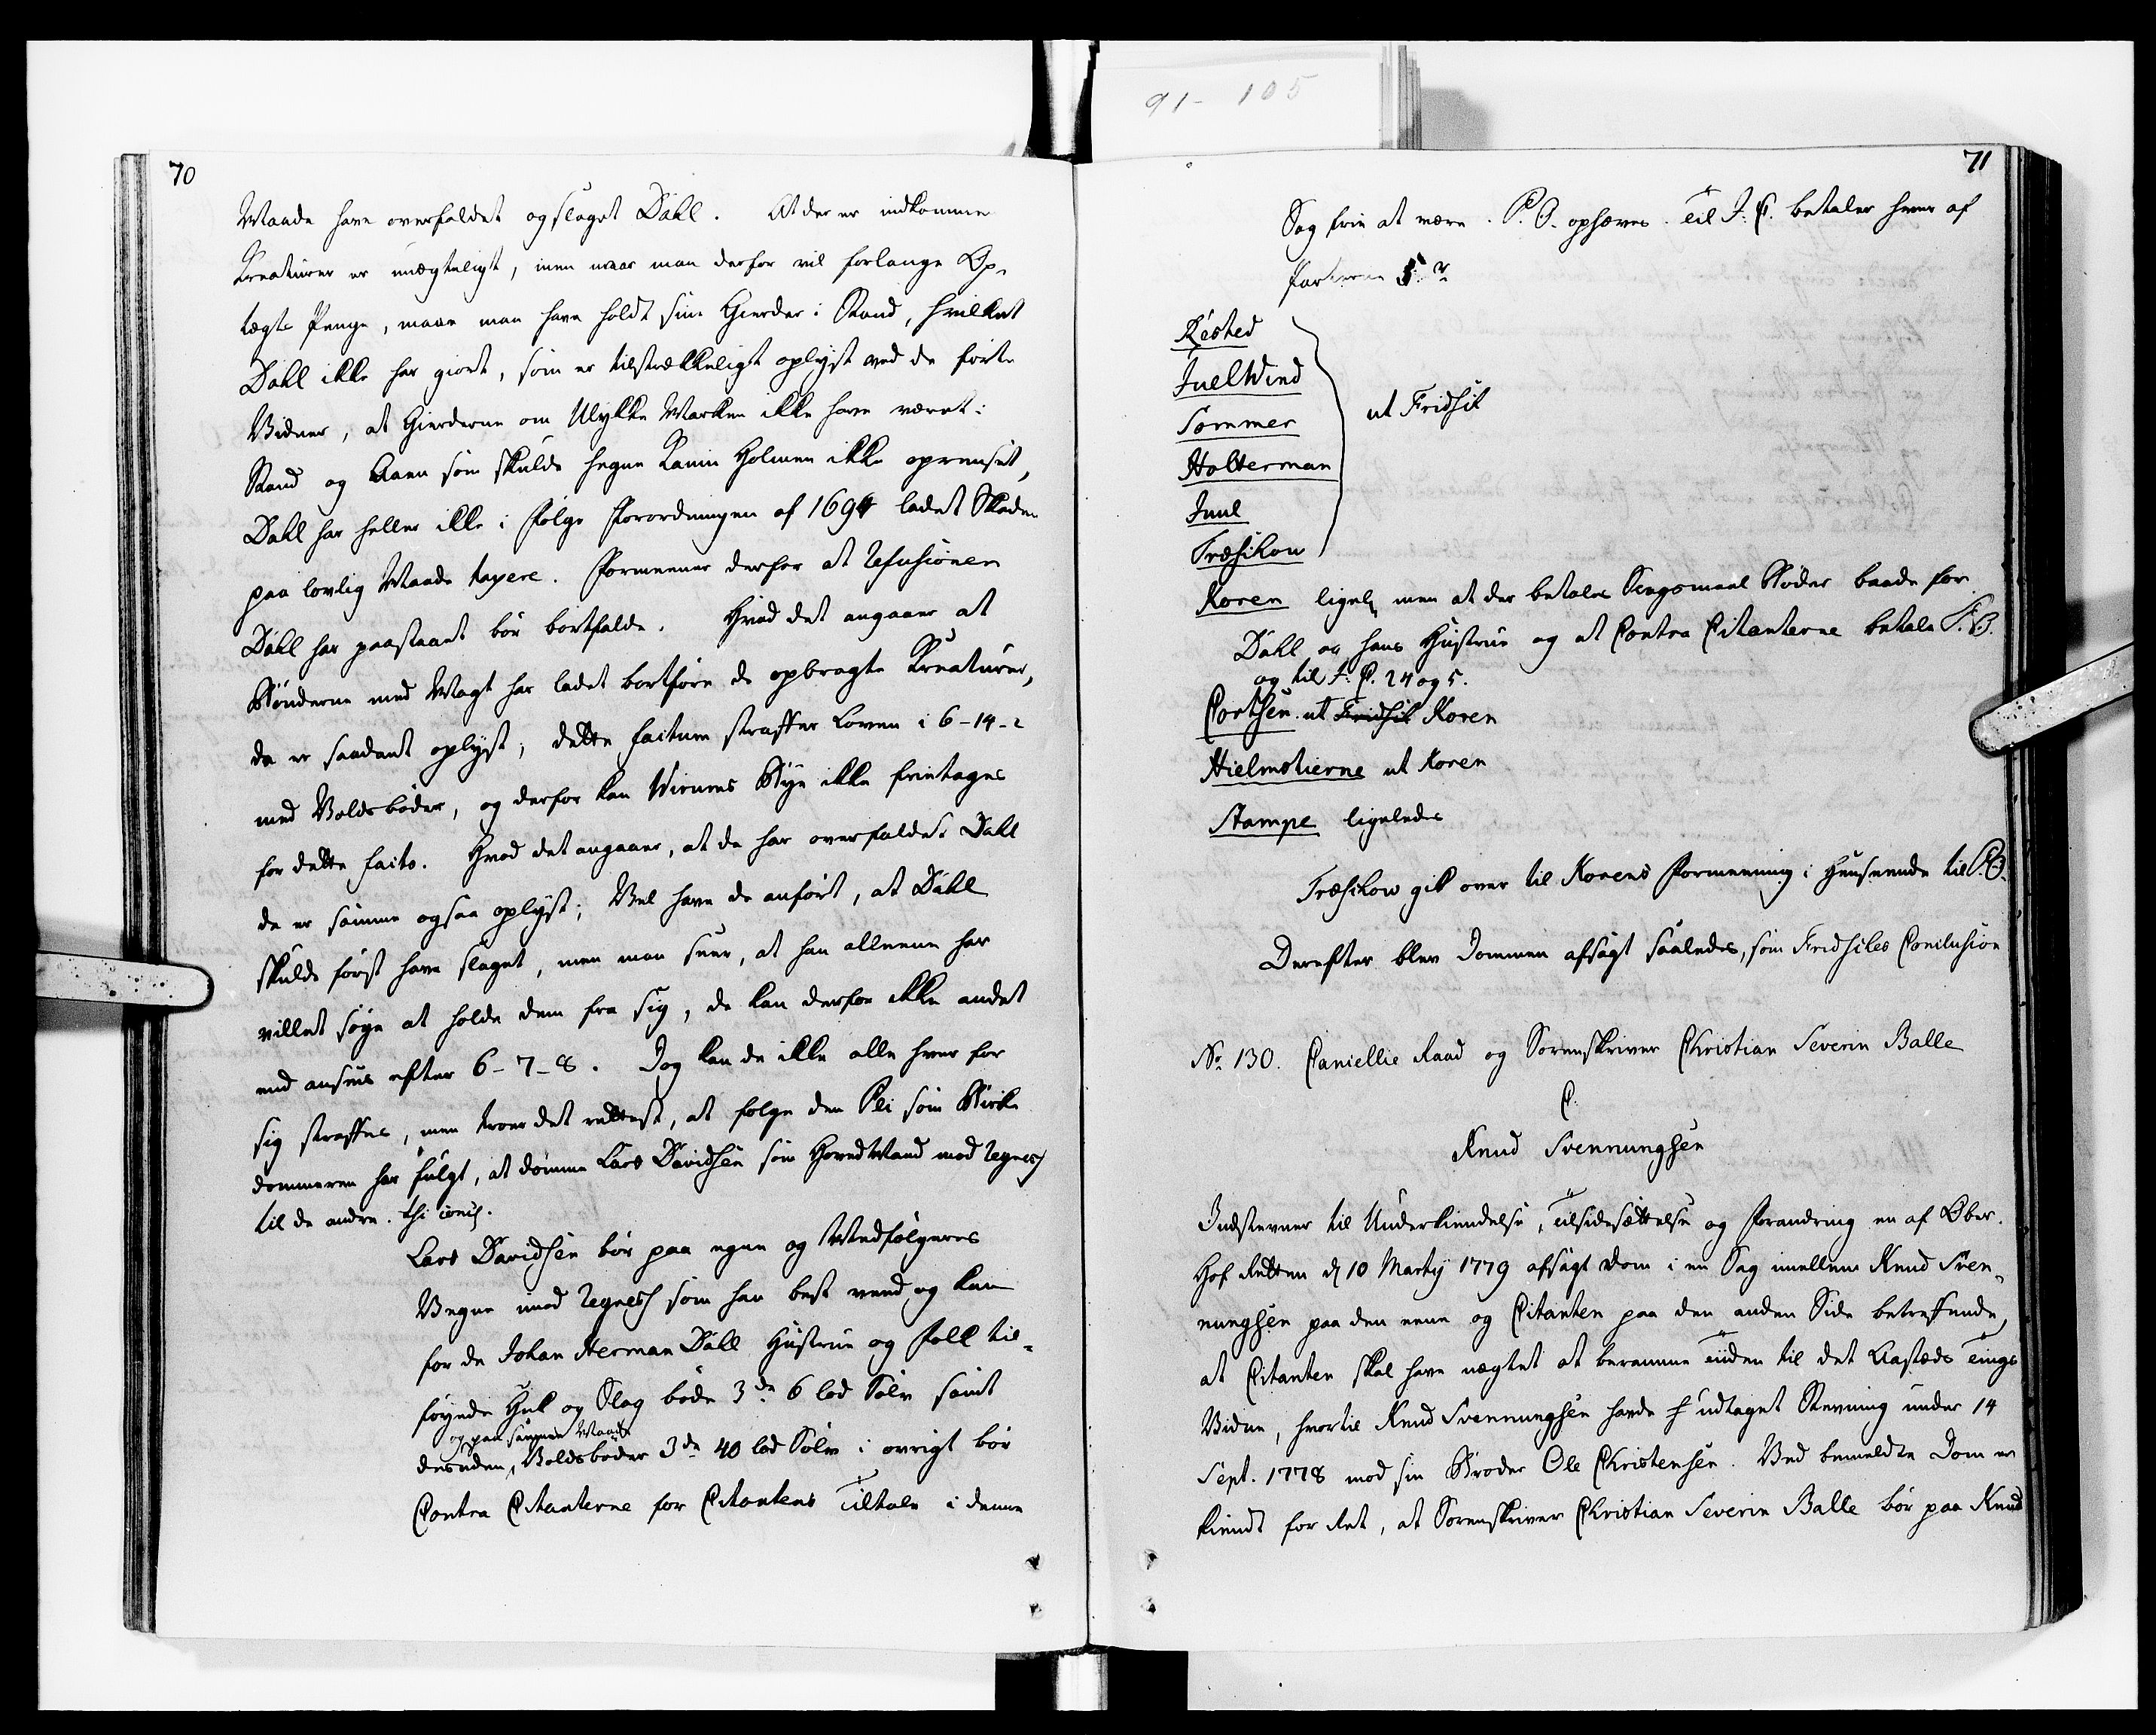 91-105
70
Maade have overfaldet og slaget Dahl. At der er indkomme
Kreaturer er unægteligt, men naar man derfor vil forlange Op-
tægts Penge, maae man have holdt sine Gierder i Stand, hvilket
Dahl ikke har giort, som er tilstrækkeligt oplyst ved de førte
Vidner, at Gierderne om Ulykke Marken ikke have været i
Stand og Aaen som skulde hegne Kanin Holmen ikke oprenset,
Dahl har heller ikke i Følge Forordningen af 1694 ladet Skaden
paa lovlig Maade taxere. Formeener derfor at Refusionen
Dahl har paastaaet bør bortfalde. Hvad det angaaer at
Bønderne med Magt har ladet bortføre de opbragte Kreaturer,
da er saadant oplyst; dette factum straffer Loven i 6-14-2
med Voldsbøder, og derfor kan Wirums Bye ikke frietages
for dette facto. Hvad det angaaer, at de har overfaldet Dahl
da er samme ogsaa oplyst; Vel have de anført, at Dahl
skulde først have slaget, men man seer, at han alleene har
villet søge at holde dem fra sig, de kan derfor ikke andet
end ansees efter 6-7-8. Dog kan de ikke alle hver for
sig straffes, men troer det rettest, at følge den Vei som Birke
dommeren har fulgt, at dømme Lars Davidsen som HovedMand mod Regress
til de andre. thi concl.
Lars Davidsen bør paa egne og Medfølgeres
Vegne imod Regress som han best veed og kan
for de Johan Herman Dahl Hustrue og Folk til-
føyede Hug og Slag bøde 3de 6 lod Sølv samt
og paa samme Maade
desuden, Voldsbøder 3de 40 lod Sølv i øvrigt bør
Contra Citanterne for Citantens Tiltale i denne
71
Sag frie at være. P. B. ophæves. Til J. C. betaler hver af
Parterne 5 r
Kested
JuelWind
Sommer
Holterman
Juul
Træschow
ut Fridsch
Koren ligel. men at der betales Sengsmaal Bøder baade for
Dahl og hans Hustrue og at Contra Citanterne betale P. B.
og til J. C. 24 og 5.
Cortsen. ut Fridsch Koren
Hielmstierne ut Koren
Stampe ligeledes
Træschow gik over til Korens Formeening i Henseende til P. B.
Derefter blev Dommen afsagt saaledes, som Fridsches Conclusion
No 130. Cancellie Raad og Sorenskriver Christian Severin Balle
C.
Knud Svennungsen
Indstevner til Underkiendelse, Tilsidesættelse og Forandring en af Over-
Hof Retten d. 10 Marty 1779 afsagt Dom i en Sag imellem Knud Sven-
nungsen paa den eene og Citanten paa den anden Side betreffende,
at Citanten skal have nægtet at beramme Tiiden til det Aasteds Tings
Vidne, hvortil Knud Svennungsen havde udtaget Stevning under 14
Sept. 1778 mod sin Broder Ole Christensen. Ved bemeldte Dom er
kiendt for Ret, at Sorenskriver Christian Severin Balle bør paa Knud